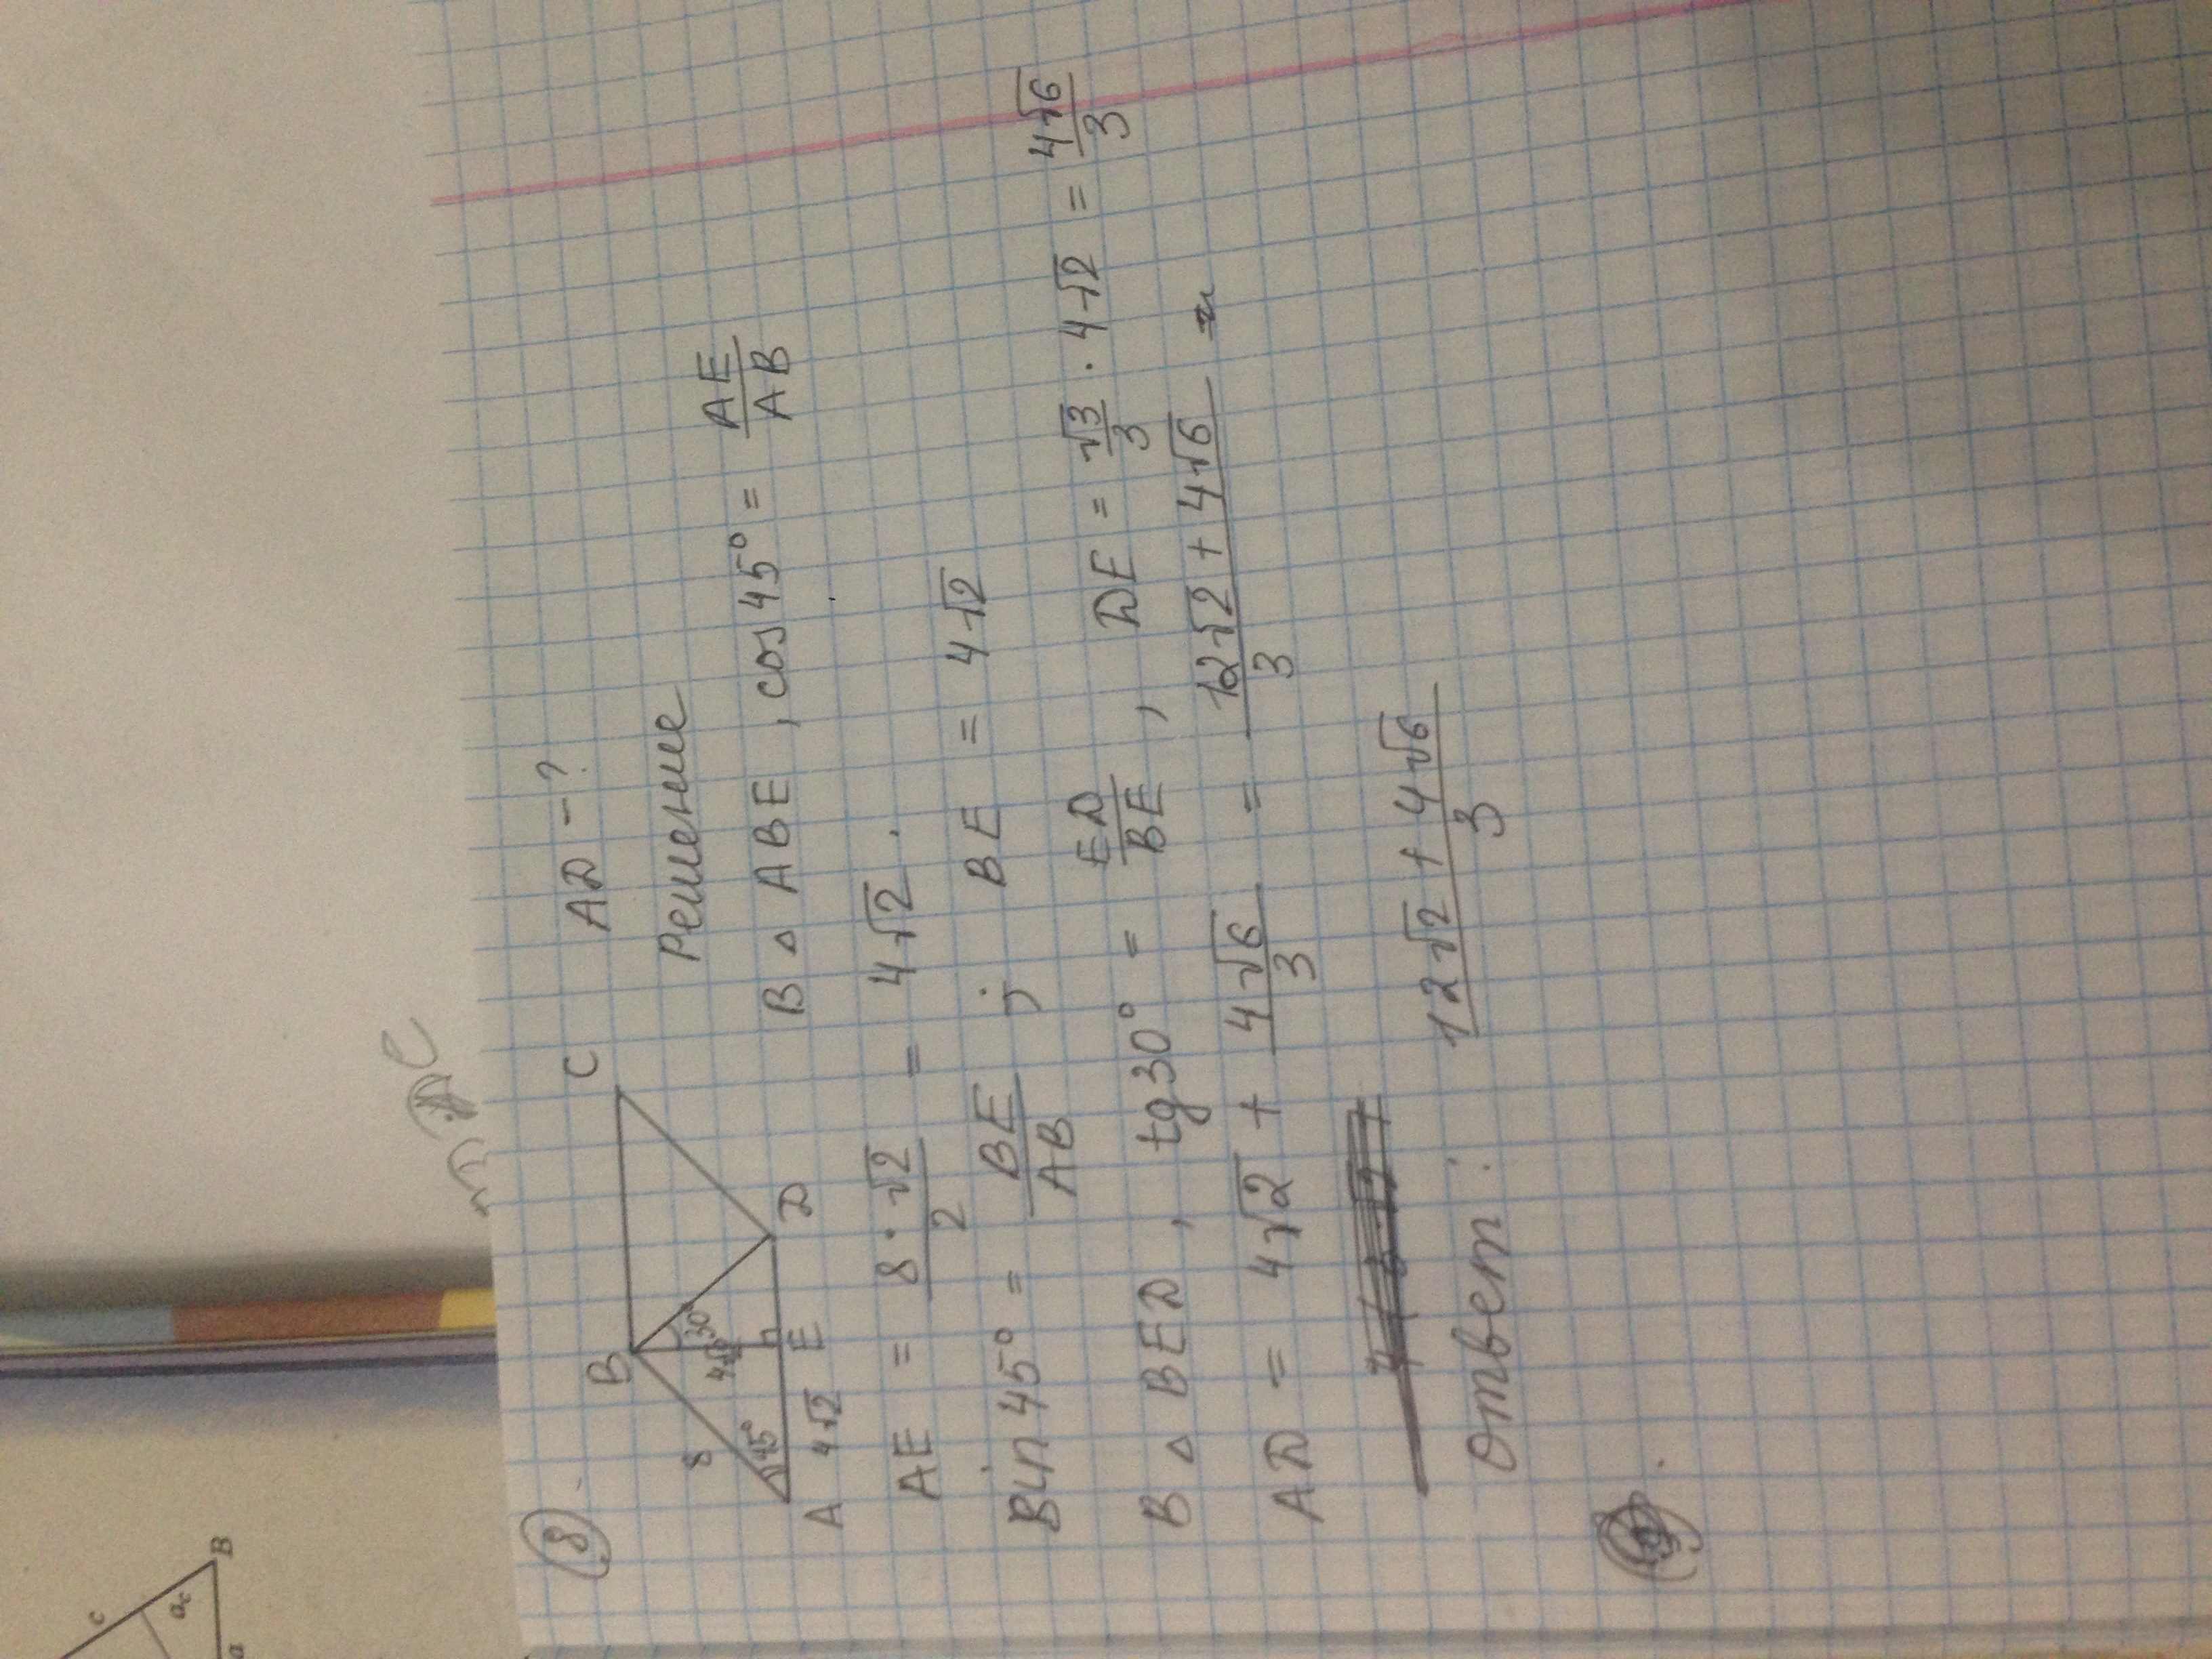 (8).
AD - ?
B C
8 45° 4√2 30°
A 4√2 E D
Решение
В △ ABE, cos 45° = AE/AB
AE = 8·√2/2 = 4√2.
Sin 45° = BE/AB ; BE = 4√2
В △ BED, tg 30° = ED/BE, DE = √3/3 · 4√2 = 4√6/3
AD = 4√2 + 4√6/3 = 12√2 + 4√6/3
Ответ: 12√2 + 4√6/3
c
a_c
B
a